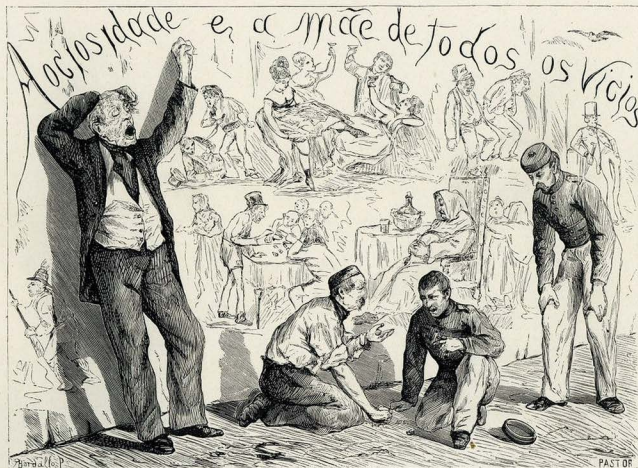 A ociosidade e a mãe de todos os vicios
Bordallo P.
PASTOR